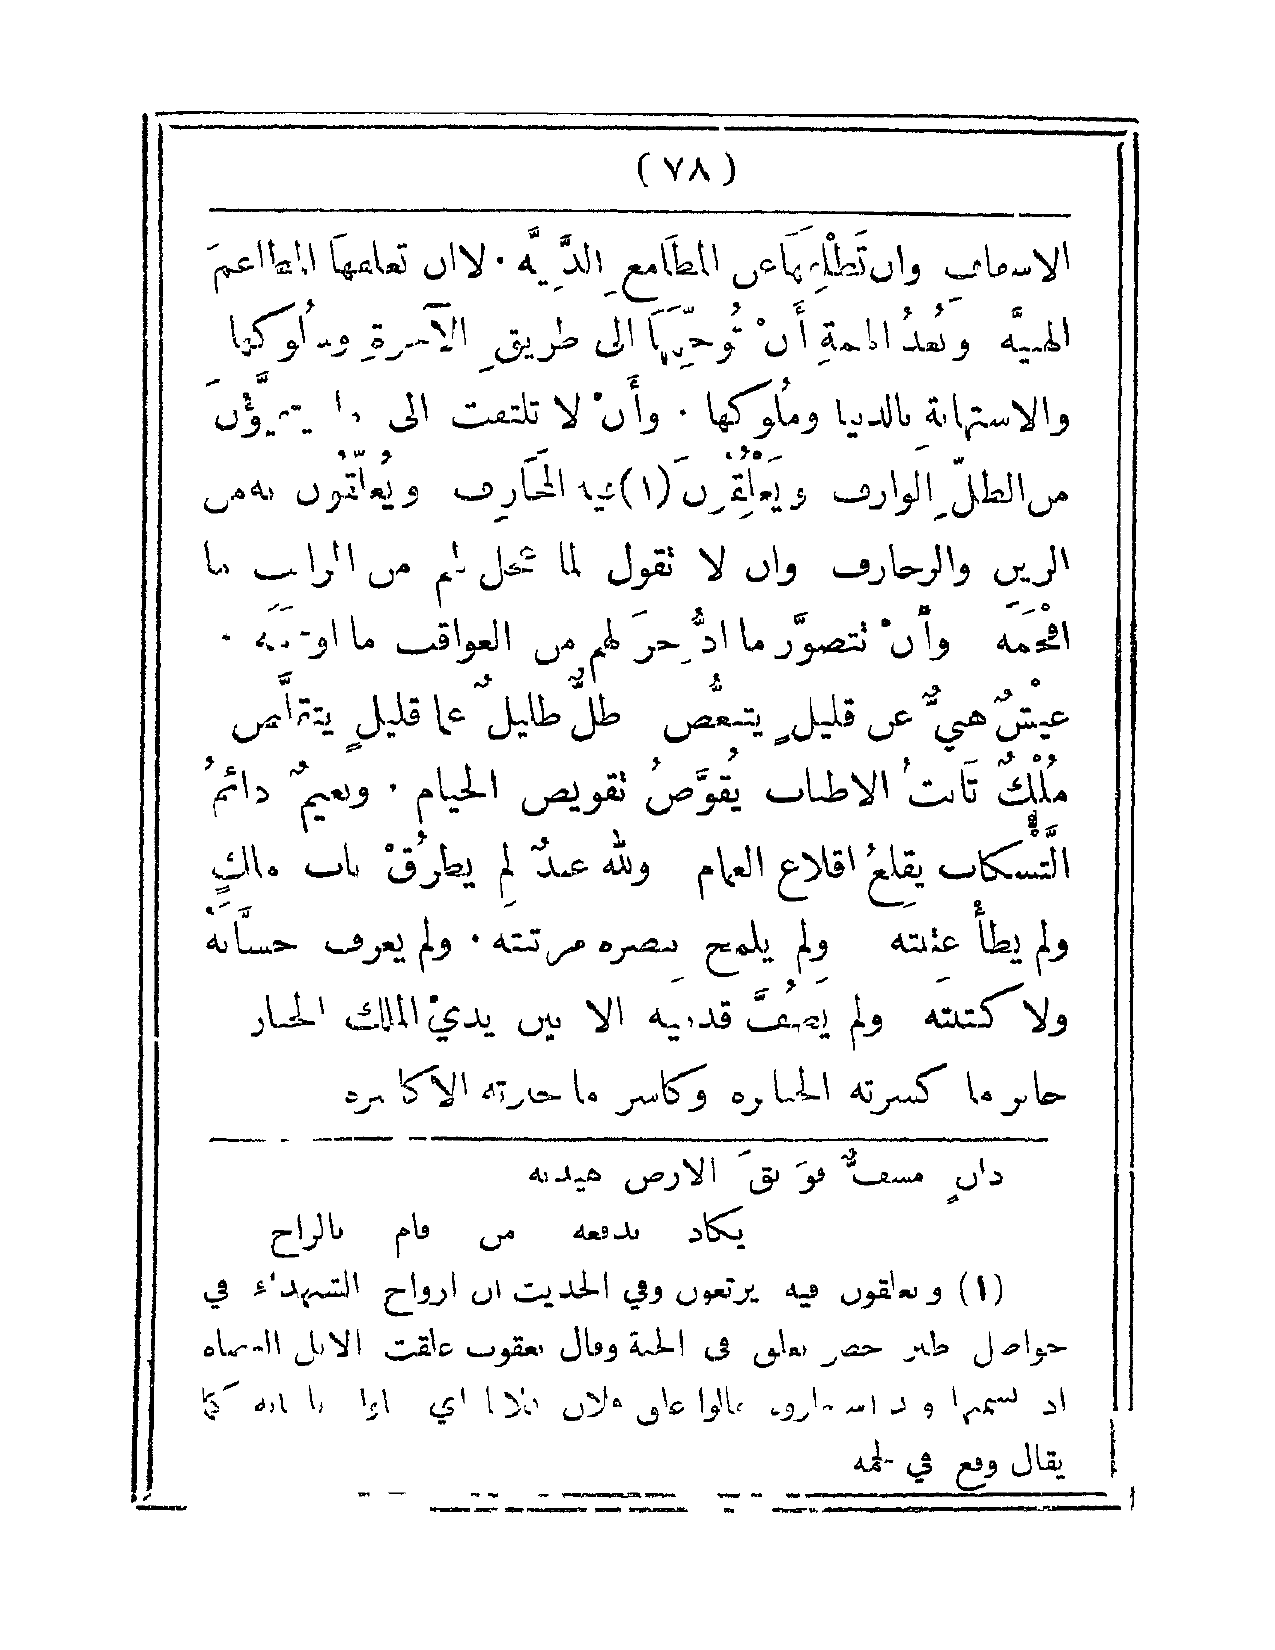 ( ٧٨ )
وان عن المطامع الدَّنِيَّة · لا ان تعلفها المطاعم
الهنيَّة وبُعدُ الهمة أنْ تُوجِّهَهَا الى طريق الآخرة وسلوكها
والاستهانة بالدنيا ومُلوكها · وأنْ لا تلتفت الى ما يتفيؤُنَ
من الظلّ الوارف ويَعْلُقُونَ (١) فيه المخَارِف ويُعلّقون به من
الزين والزخارف وان لا تقول لما عجل لهم من المراتب ما
أفخَمَه وأنْ تتصوَّر ما ادُّخِرَ لهم من العواقب ما اوخَمَه ·
عيْشٌ هنيٌّ عن قليلٍ يتنغصُ ظلٌّ ظليلٌ عما قليلٍ يتقلَّص
مُلْكٌ ثَابتُ الاطناب يُقوَّضُ تقويض الخيام · ونعيمٌ دائمُ
التَّسكاب يقلِعُ اقلاع الغمام ولله عبدٌ لم يطرُقْ باب مالكٍ
ولم يطأْ عتبته ولم يلمح ببصره مرتبته · ولم يعرف حسَّابَهُ
ولا كتبته ولم يَصُفَّ قدميه الا بين يديْ الملك الجبار
جابر ما كسرته الجبابره وكاسر ما جبرته الاكاسره
دانٍ مسفٌّ فُوَيقَ الارض هيدبه
يكاد يدفعه من قام بالراح
(١) ويعلقون فيه يرتعون وفي الحديث ان ارواح الشهداء في
حواصل طير خضر تعلق في الجنة وقال يعقوب علقت الابل العضاه
اذ تسنمتها فلان فلانا اي
يقال وقع في لحمه